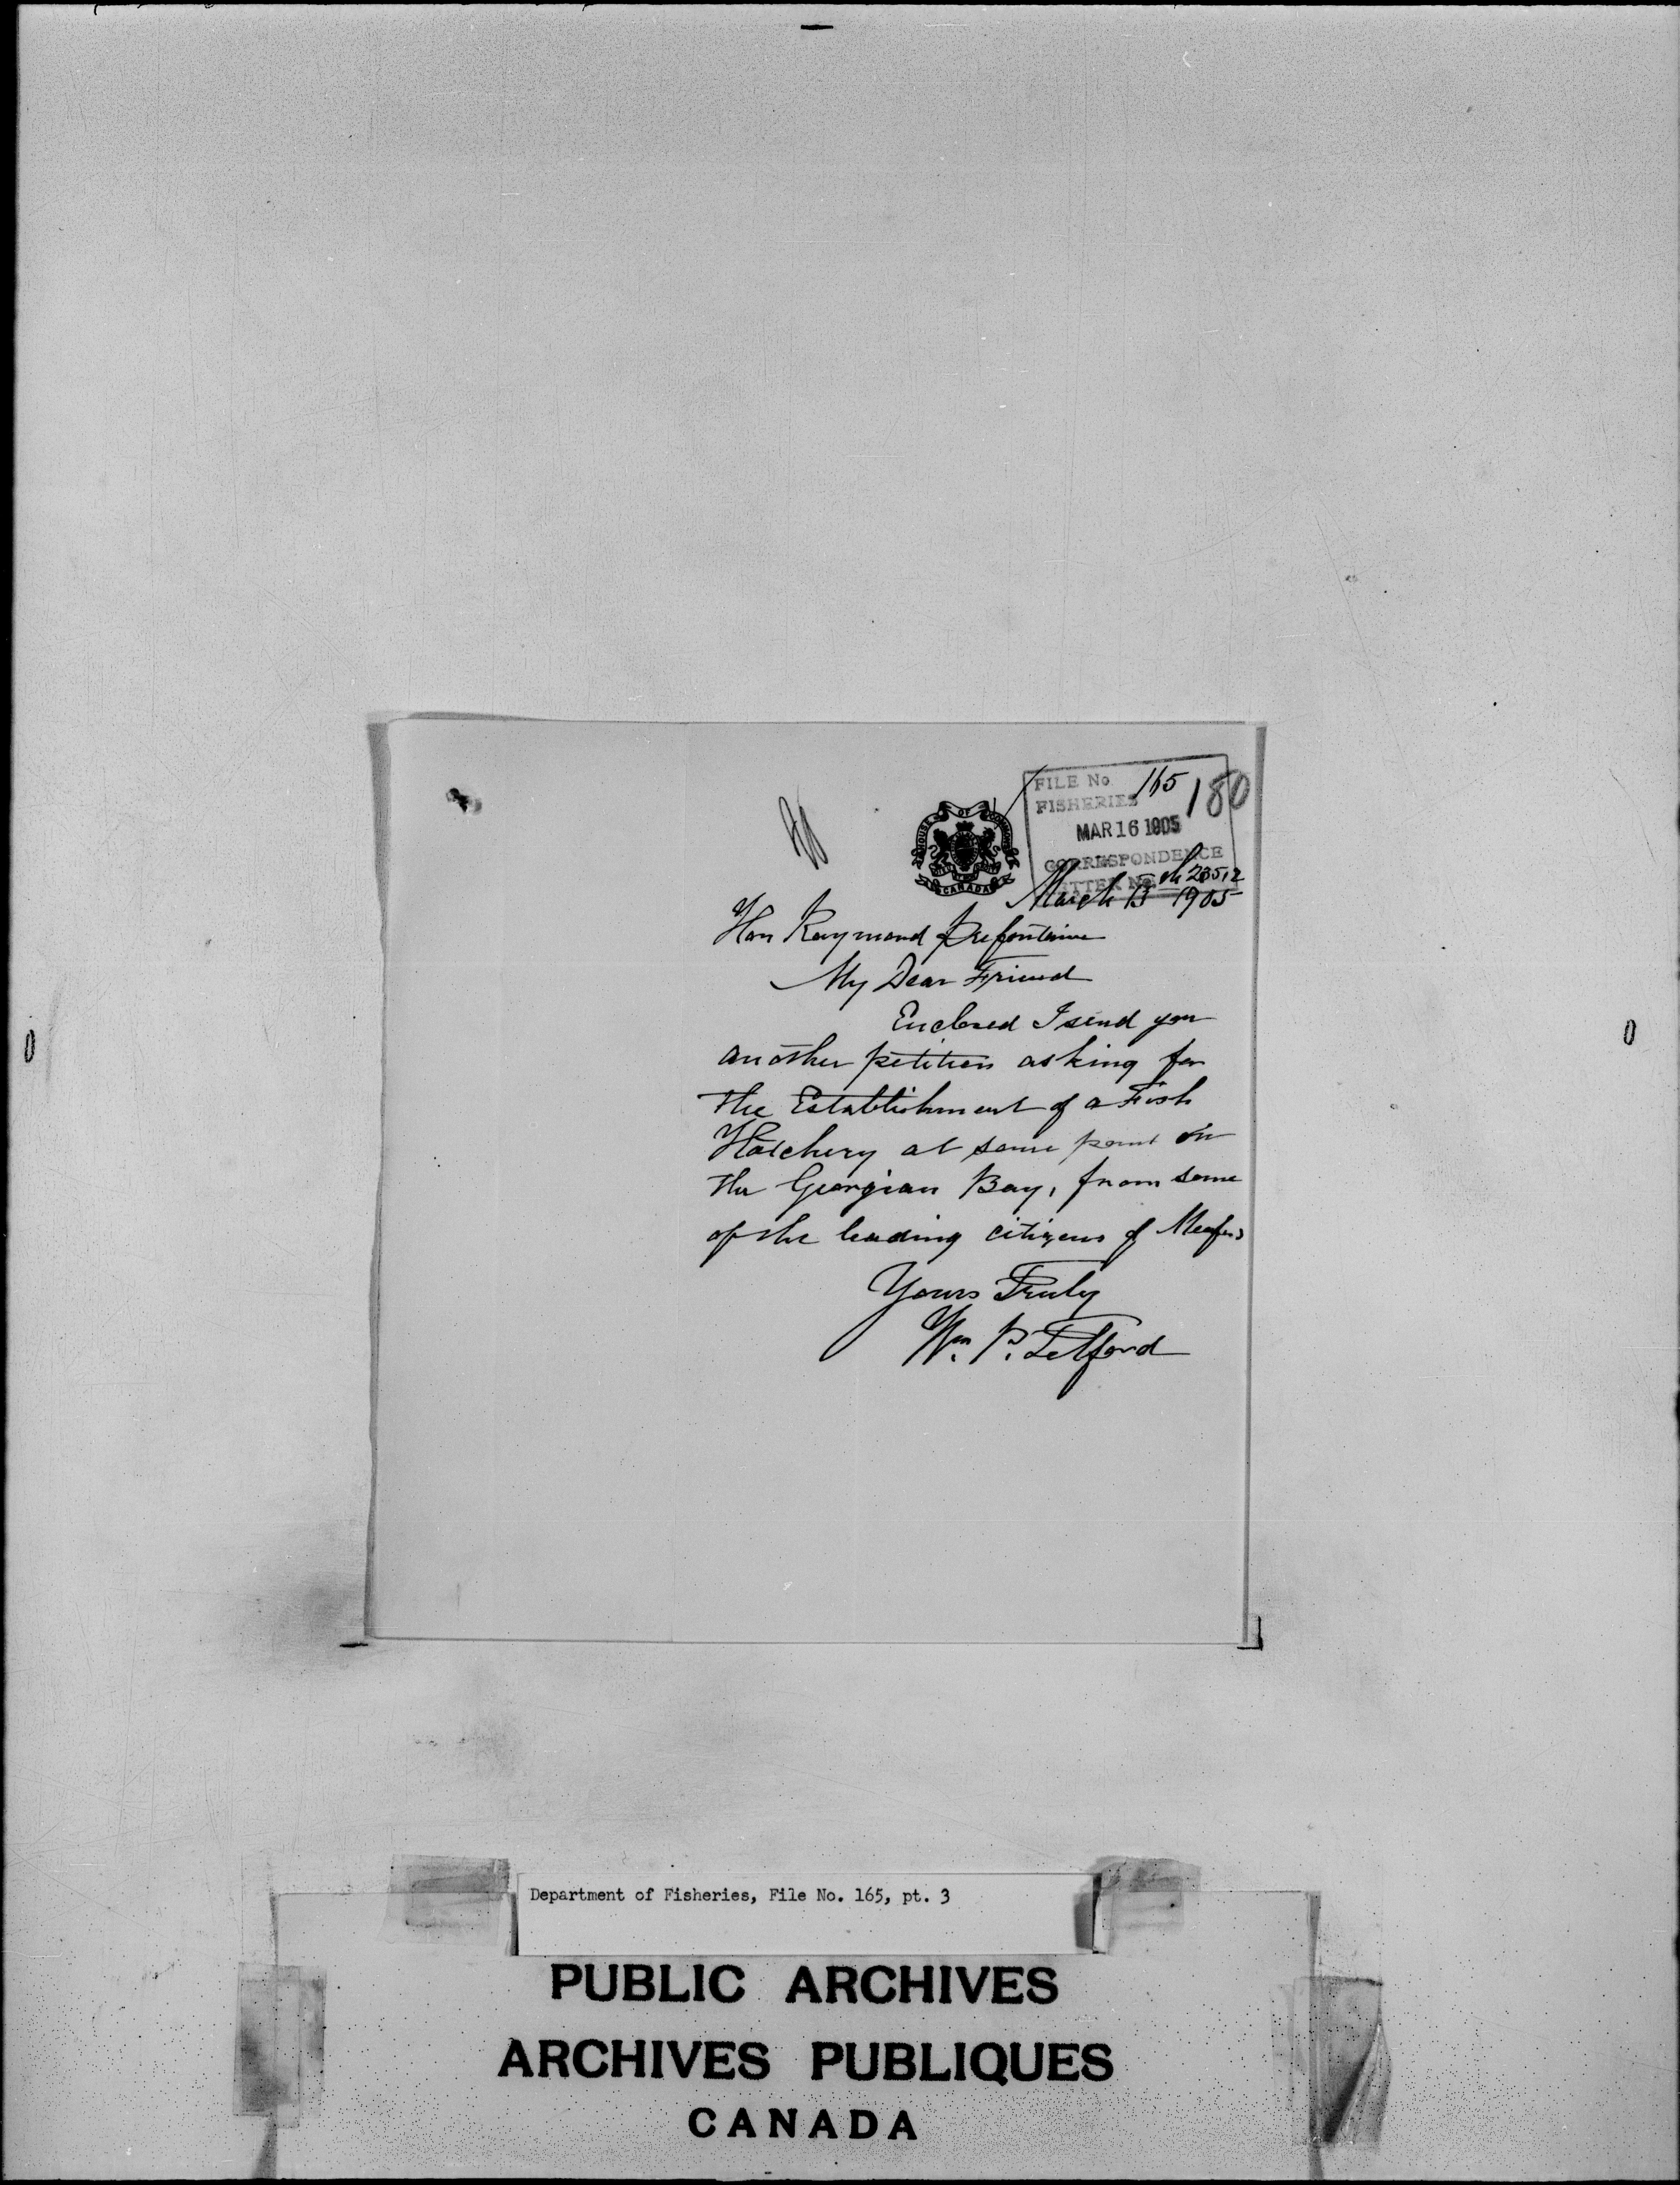 FILE No 165
FISHERIES
180
MAR 16 1905
CORRESPONDENCE
LETTER No 23512
HOUSE OF COMMONS
CANADA
March 13th 1905
Hon Raymond Prefontaine
My Dear Friend
Enclosed I send you
another petition asking for
the Establishment of a Fish
Hatchery at some point on
the Georgian Bay, from some
of the leading citizens of Meaford
Yours Truly
Wm. P. Telford
Department of Fisheries, File No. 165, pt. 3
PUBLIC ARCHIVES
ARCHIVES PUBLIQUES
CANADA